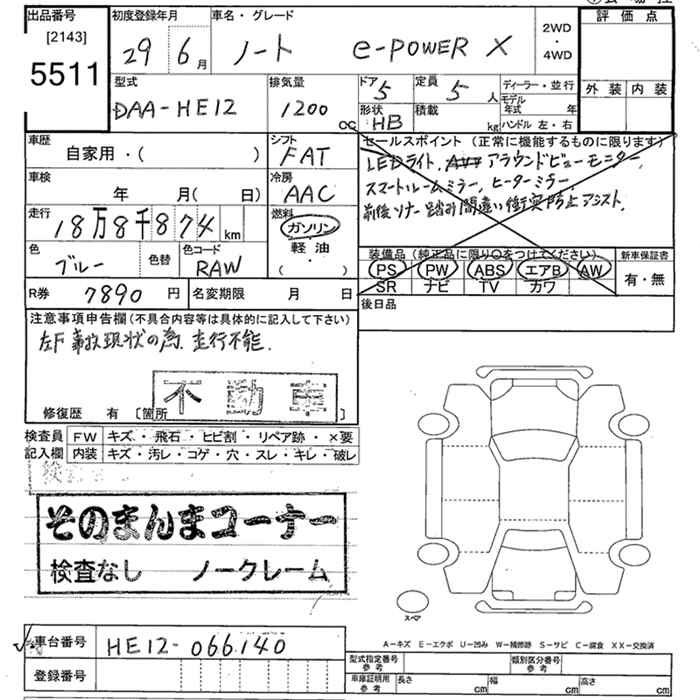 出品番号
[2143]
5511
初度登録年月
29 6月
車名・グレード
ノート e-POWER X
2WD
・
4WD
評価点
外装 内装
型式
DAA-HE12
排気量
1200 cc
ドア 5
形状 HB
定員 5 人
積載 kg
ディーラー・並行
モデル年式 年
ハンドル 左・右
車歴
自家用・( )
シフト
FAT
セールスポイント (正常に機能するものに限ります)
LEDライト, アラウンドビューモニター,
スマートルームミラー, ヒーターミラー,
前後ソナー 踏み間違い衝突防止アシスト,
車検
年 月(日)
冷房
AAC
走行
18万8千874 km
燃料
ガソリン
軽油
( )
色
ブルー
色替
色コード
RAW
装備品 (純正品に限り○をつけてください)
PS PW ABS エアB AW
SR ナビ TV カワ
新車保証書
有・無
R券 7890 円
名変期限 月 日
後日品
注意事項申告欄(不具合内容等は具体的に記入して下さい)
左F事故現状の為 走行不能.
不動車
修復歴 有 [箇所 ]
検査員
記入欄
FW キズ・飛石・ヒビ割・リペア跡・×要
内装 キズ・汚レ・コゲ・穴・スレ・キレ・破レ
そのまんまコーナー
検査なし ノークレーム
スペア
車台番号 HE12-066140
登録番号
A-キズ E-エクボ U-凹み W-補修跡 S-サビ C-腐食 XX-交換済
型式指定番号
参考
類別区分番号
参考
車庫証明用
参考
長さ cm 幅 cm 高さ cm